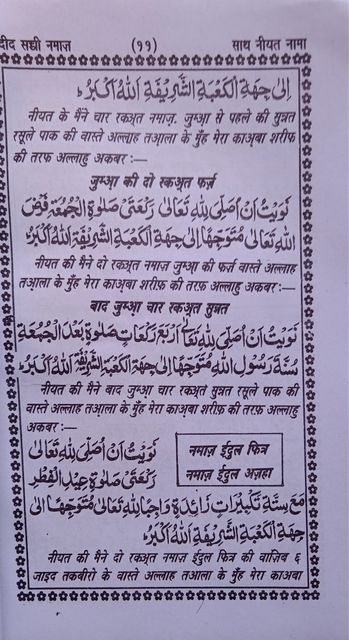 दीद सच्ची नमाज़ (११) साथ नीयत नामा
اِلٰى جِهَةِ الْكَعْبَةِ الشَّرِيْفَةِ اَللهُ اَكْبَرُ ؕ
नीयत के मैंने चार रकअ़त नमाज़. जुमआ से पहले की सुन्नत
रसूले पाक की वास्ते अल्लाह तआ़ला के मुँह मेरा काअ़बा शरीफ
की तरफ़ अल्लाहु अकबर :—
जुमआ की दो रकअ़त फ़र्ज़
نَوَيْتُ اَنْ اُصَلِّىَ لِلّٰهِ تَعَالٰى رَكْعَتَىْ صَلٰوةِ الْجُمُعَةِ فَرْضُ
اللهِ تَعَالٰى مُتَوَجِّهًا اِلٰى جِهَةِ الْكَعْبَةِ الشَّرِيْفَةِ اَللهُ اَكْبَرُ ؕ
नीयत की मैने दो रकअ़त नमाज़ जुमआ की फर्ज़ वास्ते अल्लाह
तआ़ला के मुँह मेरा काअ़बा शरीफ़ की तरफ़ अल्लाहु अकबर :—
बाद जुमआ चार रकअ़त सुन्नत
نَوَيْتُ اَنْ اُصَلِّىَ لِلّٰهِ تَعَالٰى اَرْبَعَ رَكَعَاتِ صَلٰوةِ بَعْدَ الْجُمُعَةِ
سُنَّةُ رَسُوْلِ اللهِ مُتَوَجِّهًا اِلٰى جِهَةِ الْكَعْبَةِ الشَّرِيْفَةِ اَللهُ اَكْبَرُ ؕ
नीयत की मैने बाद जुमआ चार रकअ़त सुन्नत रसूले पाक की
वास्ते अल्लाह तआ़ला के मुँह मेरा काअ़बा शरीफ़ की तरफ़ अल्लाहु
अकबर :—
نَوَيْتُ اَنْ اُصَلِّىَ لِلّٰهِ تَعَالٰى
नमाज़ ईदुल फित्र
رَكْعَتَىْ صَلٰوةِ عِيْدِ الْفِطْرِ
नमाज़ ईदुल अज़हा
مَعَ سِتَّةِ تَكْبِيْرَاتٍ زَائِدَةٍ وَاجِبًا لِلّٰهِ تَعَالٰى مُتَوَجِّهًا اِلٰى
جِهَةِ الْكَعْبَةِ الشَّرِيْفَةِ اَللهُ اَكْبَرُ ؕ
नीयत की मैने दो रकअ़त नमाज़ ईदुल फित्र की वाज़िब ६
जाइद तकबीरो के वास्ते अल्लाह तआला के मुँह मेरा काअबा